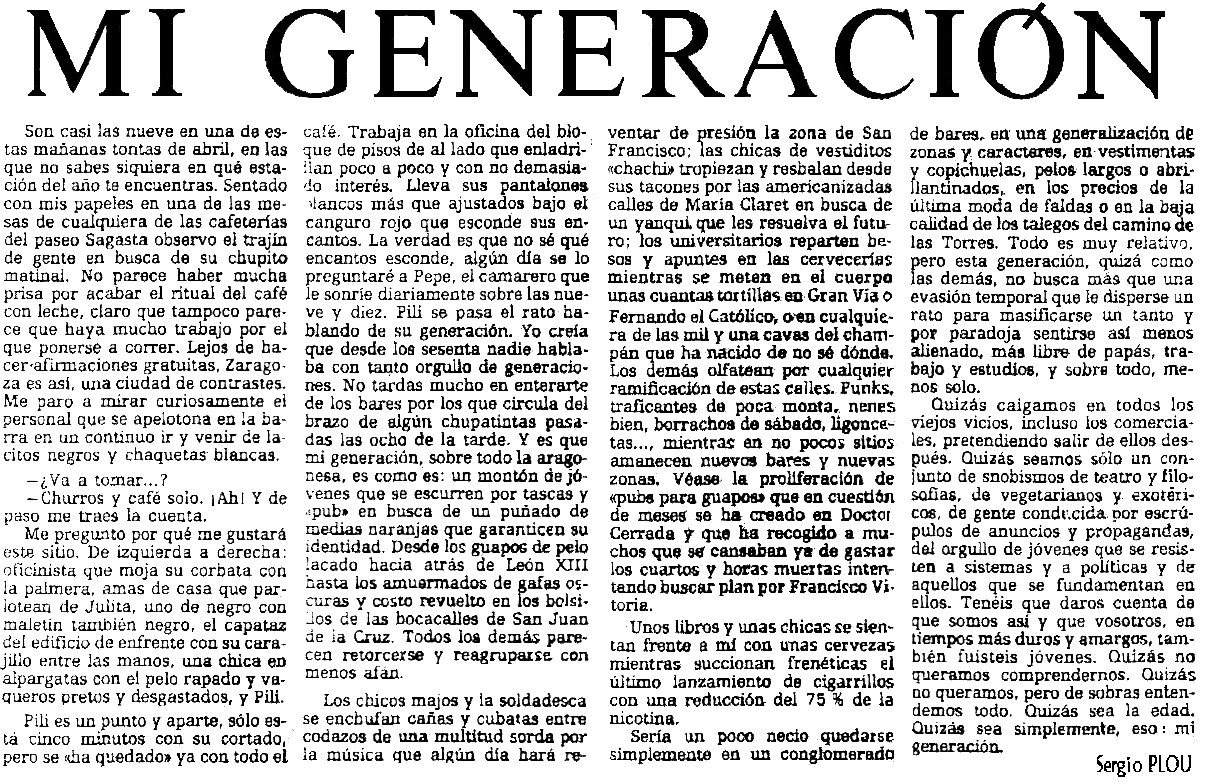 MI GENERACIÓN
Son casi las nueve en una de es-
tas mañanas tontas de abril, en las
que no sabes siquiera en qué esta-
ción del año te encuentras. Sentado
con mis papeles en una de las me-
sas de cualquiera de las cafeterías
del paseo Sagasta observo el trajín
de gente en busca de su chupito
matinal. No parece haber mucha
prisa por acabar el ritual del café
con leche, claro que tampoco pare-
ce que haya mucho trabajo por el
que ponerse a correr. Lejos de ha-
cer afirmaciones gratuitas, Zarago-
za es así, una ciudad de contrastes.
Me paro a mirar curiosamente el
personal que se apelotona en la ba-
rra en un continuo ir y venir de la-
citos negros y chaquetas blancas.
—¿Va a tomar...?
—Churros y café solo. ¡Ah! Y de
paso me traes la cuenta.
Me pregunto por qué me gustará
este sitio. De izquierda a derecha:
oficinista que moja su corbata con
la palmera, amas de casa que par-
lotean de Julita, uno de negro con
maletín también negro, el capataz
del edificio de enfrente con su cara-
jillo entre las manos, una chica en
alpargatas con el pelo rapado y va-
queros pretos y desgastados, y Pili.
Pili es un punto y aparte, sólo es-
tá cinco minutos con su cortado,
pero se «ha quedado» ya con todo el
café. Trabaja en la oficina del blo-
que de pisos de al lado que enladri-
llan poco a poco y con no demasia-
do interés. Lleva sus pantalones
blancos más que ajustados bajo el
canguro rojo que esconde sus en-
cantos. La verdad es que no sé qué
encantos esconde, algún día se lo
preguntaré a Pepe, el camarero que
le sonríe diariamente sobre las nue-
ve y diez. Pili se pasa el rato ha-
blando de su generación. Yo creía
que desde los sesenta nadie habla-
ba con tanto orgullo de generacio-
nes. No tardas mucho en enterarte
de los bares por los que circula del
brazo de algún chupatintas pasa-
das las ocho de la tarde. Y es que
mi generación, sobre todo la arago-
nesa, es como es: un montón de jó-
venes que se escurren por tascas y
«pub» en busca de un puñado de
medias naranjas que garanticen su
identidad. Desde los guapos de pelo
lacado hacia atrás de León XIII
hasta los amuermados de gafas os-
curas y costo revuelto en los bolsi-
llos de las bocacalles de San Juan
de la Cruz. Todos los demás pare-
cen retorcerse y reagruparse con
menos afán.
Los chicos majos y la soldadesca
se enchufan cañas y cubatas entre
codazos de una multitud sorda por
la música que algún día hará re-
ventar de presión la zona de San
Francisco; las chicas de vestiditos
«chachi» tropiezan y resbalan desde
sus tacones por las americanizadas
calles de María Claret en busca de
un yanqui que les resuelva el futu-
ro; los universitarios reparten be-
sos y apuntes en las cervecerías
mientras se meten en el cuerpo
unas cuantas tortillas en Gran Vía o
Fernando el Católico, o en cualquie-
ra de las mil y una cavas del cham-
pán que ha nacido de no sé dónde.
Los demás olfatean por cualquier
ramificación de estas calles. Punks,
traficantes de poca monta, nenes
bien, borrachos de sábado, ligonce-
tas..., mientras en no pocos sitios
amanecen nuevos bares y nuevas
zonas. Véase la proliferación de
«pubs para guapos» que en cuestión
de meses se ha creado en Doctor
Cerrada y que ha recogido a mu-
chos que se cansaban ya de gastar
los cuartos y horas muertas inten-
tando buscar plan por Francisco Vi-
toria.
Unos libros y unas chicas se sien-
tan frente a mí con unas cervezas
mientras succionan frenéticas el
último lanzamiento de cigarrillos
con una reducción del 75 % de la
nicotina.
Sería un poco necio quedarse
simplemente en un conglomerado
de bares, en una generalización de
zonas y caracteres, en vestimentas
y copichuelas, pelos largos o abri-
llantinados, en los precios de la
última moda de faldas o en la baja
calidad de los talegos del camino de
las Torres. Todo es muy relativo,
pero esta generación, quizá como
las demás, no busca más que una
evasión temporal que le disperse un
rato para masificarse un tanto y
por paradoja sentirse así menos
alienado, más libre de papás, tra-
bajo y estudios, y sobre todo, me-
nos solo.
Quizás caigamos en todos los
viejos vicios, incluso los comercia-
les, pretendiendo salir de ellos des-
pués. Quizás seamos sólo un con-
junto de snobismos de teatro y filo-
sofías, de vegetarianos y exotéri-
cos, de gente conducida por escrú-
pulos de anuncios y propagandas,
del orgullo de jóvenes que se resis-
ten a sistemas y a políticas y de
aquellos que se fundamentan en
ellos. Tenéis que daros cuenta de
que somos así y que vosotros, en
tiempos más duros y amargos, tam-
bién fuisteis jóvenes. Quizás no
queramos comprendernos. Quizás
no queramos, pero de sobras enten-
demos todo. Quizás sea la edad.
Quizás sea simplemente, eso: mi
generación.
Sergio PLOU